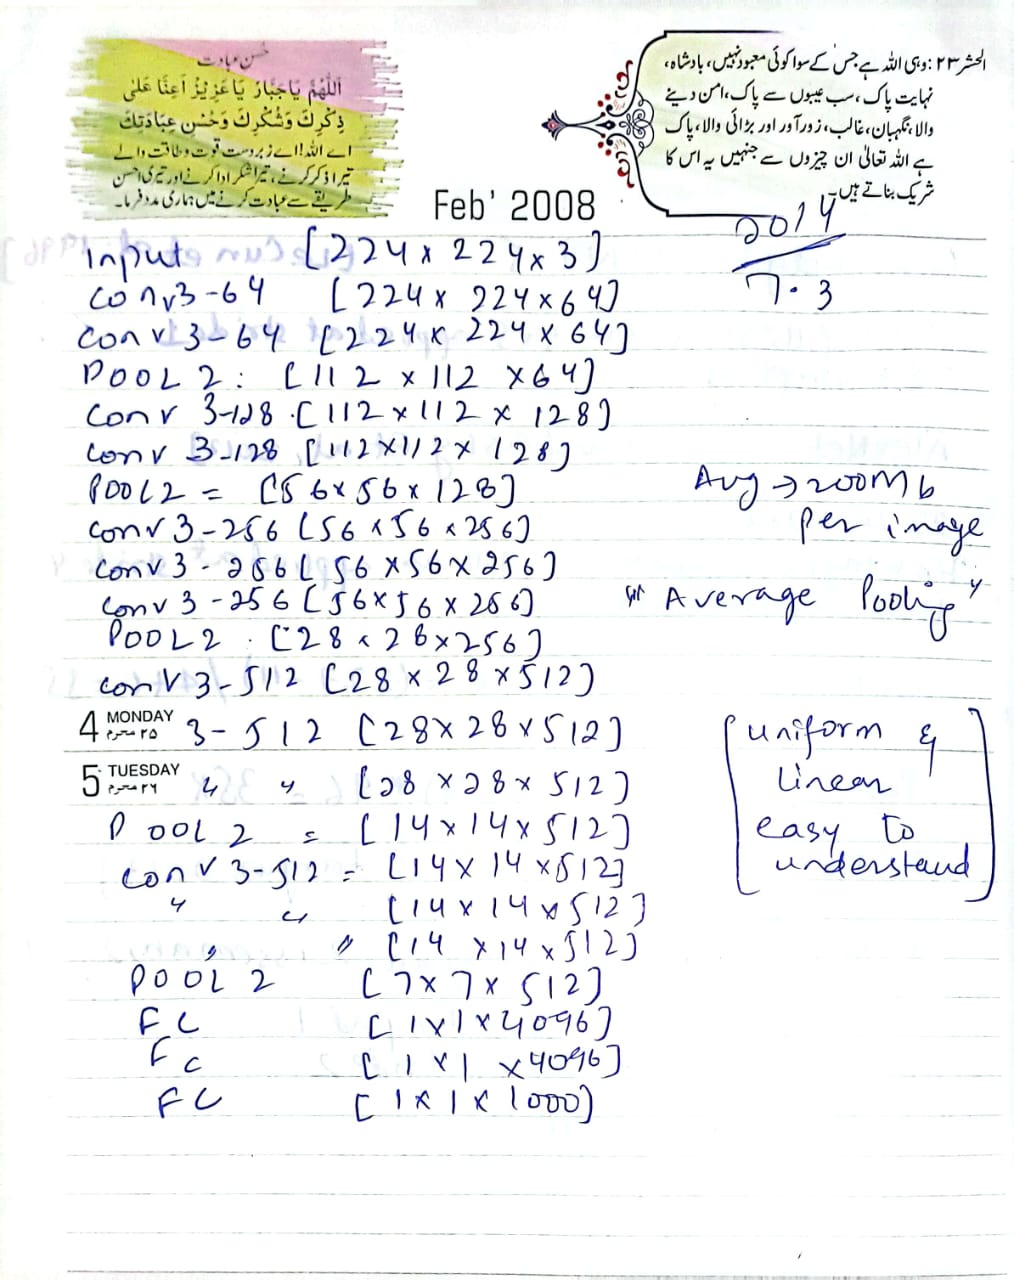 حُسنِ عبادت
اَللّٰهُمَّ يَاجَبَّارُ يَاعَزِيْزُ اَعِنَّا عَلٰى
ذِكْرِكَ وَشُكْرِكَ وَحُسْنِ عِبَادَتِكَ
اے اللہ! اے زبردست قوت وطاقت والے
تیرا ذکر کرنے، تیرا شکر ادا کرنے اور تیری احسن
طریقے سے عبادت کرنے میں ہماری مدد فرما۔
الحشر ۲۳: وہی اللہ ہے جس کے سوا کوئی معبود نہیں، بادشاہ،
نہایت پاک، سب عیبوں سے پاک، امن دینے
والا، نگہبان، غالب، زورآور اور بڑائی والا، پاک
ہے اللہ تعالیٰ ان چیزوں سے جنہیں یہ اس کا
شریک بناتے ہیں۔
Feb' 2008
2014
7.3
Input [224 x 224 x 3]
Conv3-64 [224 x 224 x 64]
Conv 3-64 [224 x 224 x 64]
POOL 2: [112 x 112 x 64]
Conv 3-128 [112 x 112 x 128]
Conv 3-128 [112 x 112 x 128]
POOL2 = [56 x 56 x 128]
Conv 3-256 [56 x 56 x 256]
Conv 3-256 [56 x 56 x 256]
Conv 3-256 [56 x 56 x 256]
POOL2 : [28 x 28 x 256]
Conv 3-512 [28 x 28 x 512]
4 MONDAY ۲۵ محرم 3-512 [28 x 28 x 512]
5 TUESDAY ۲۶ محرم " " [28 x 28 x 512]
POOL 2 = [14 x 14 x 512]
Conv 3-512 = [14 x 14 x 512]
" " [14 x 14 x 512]
" " [14 x 14 x 512]
POOL 2 [7 x 7 x 512]
FC [1 x 1 x 4096]
FC [1 x 1 x 4096]
FC [1 x 1 x 1000]
Avg → 200Mb
per image
" Average Pooling "
[uniform &
linear
easy to
understand]